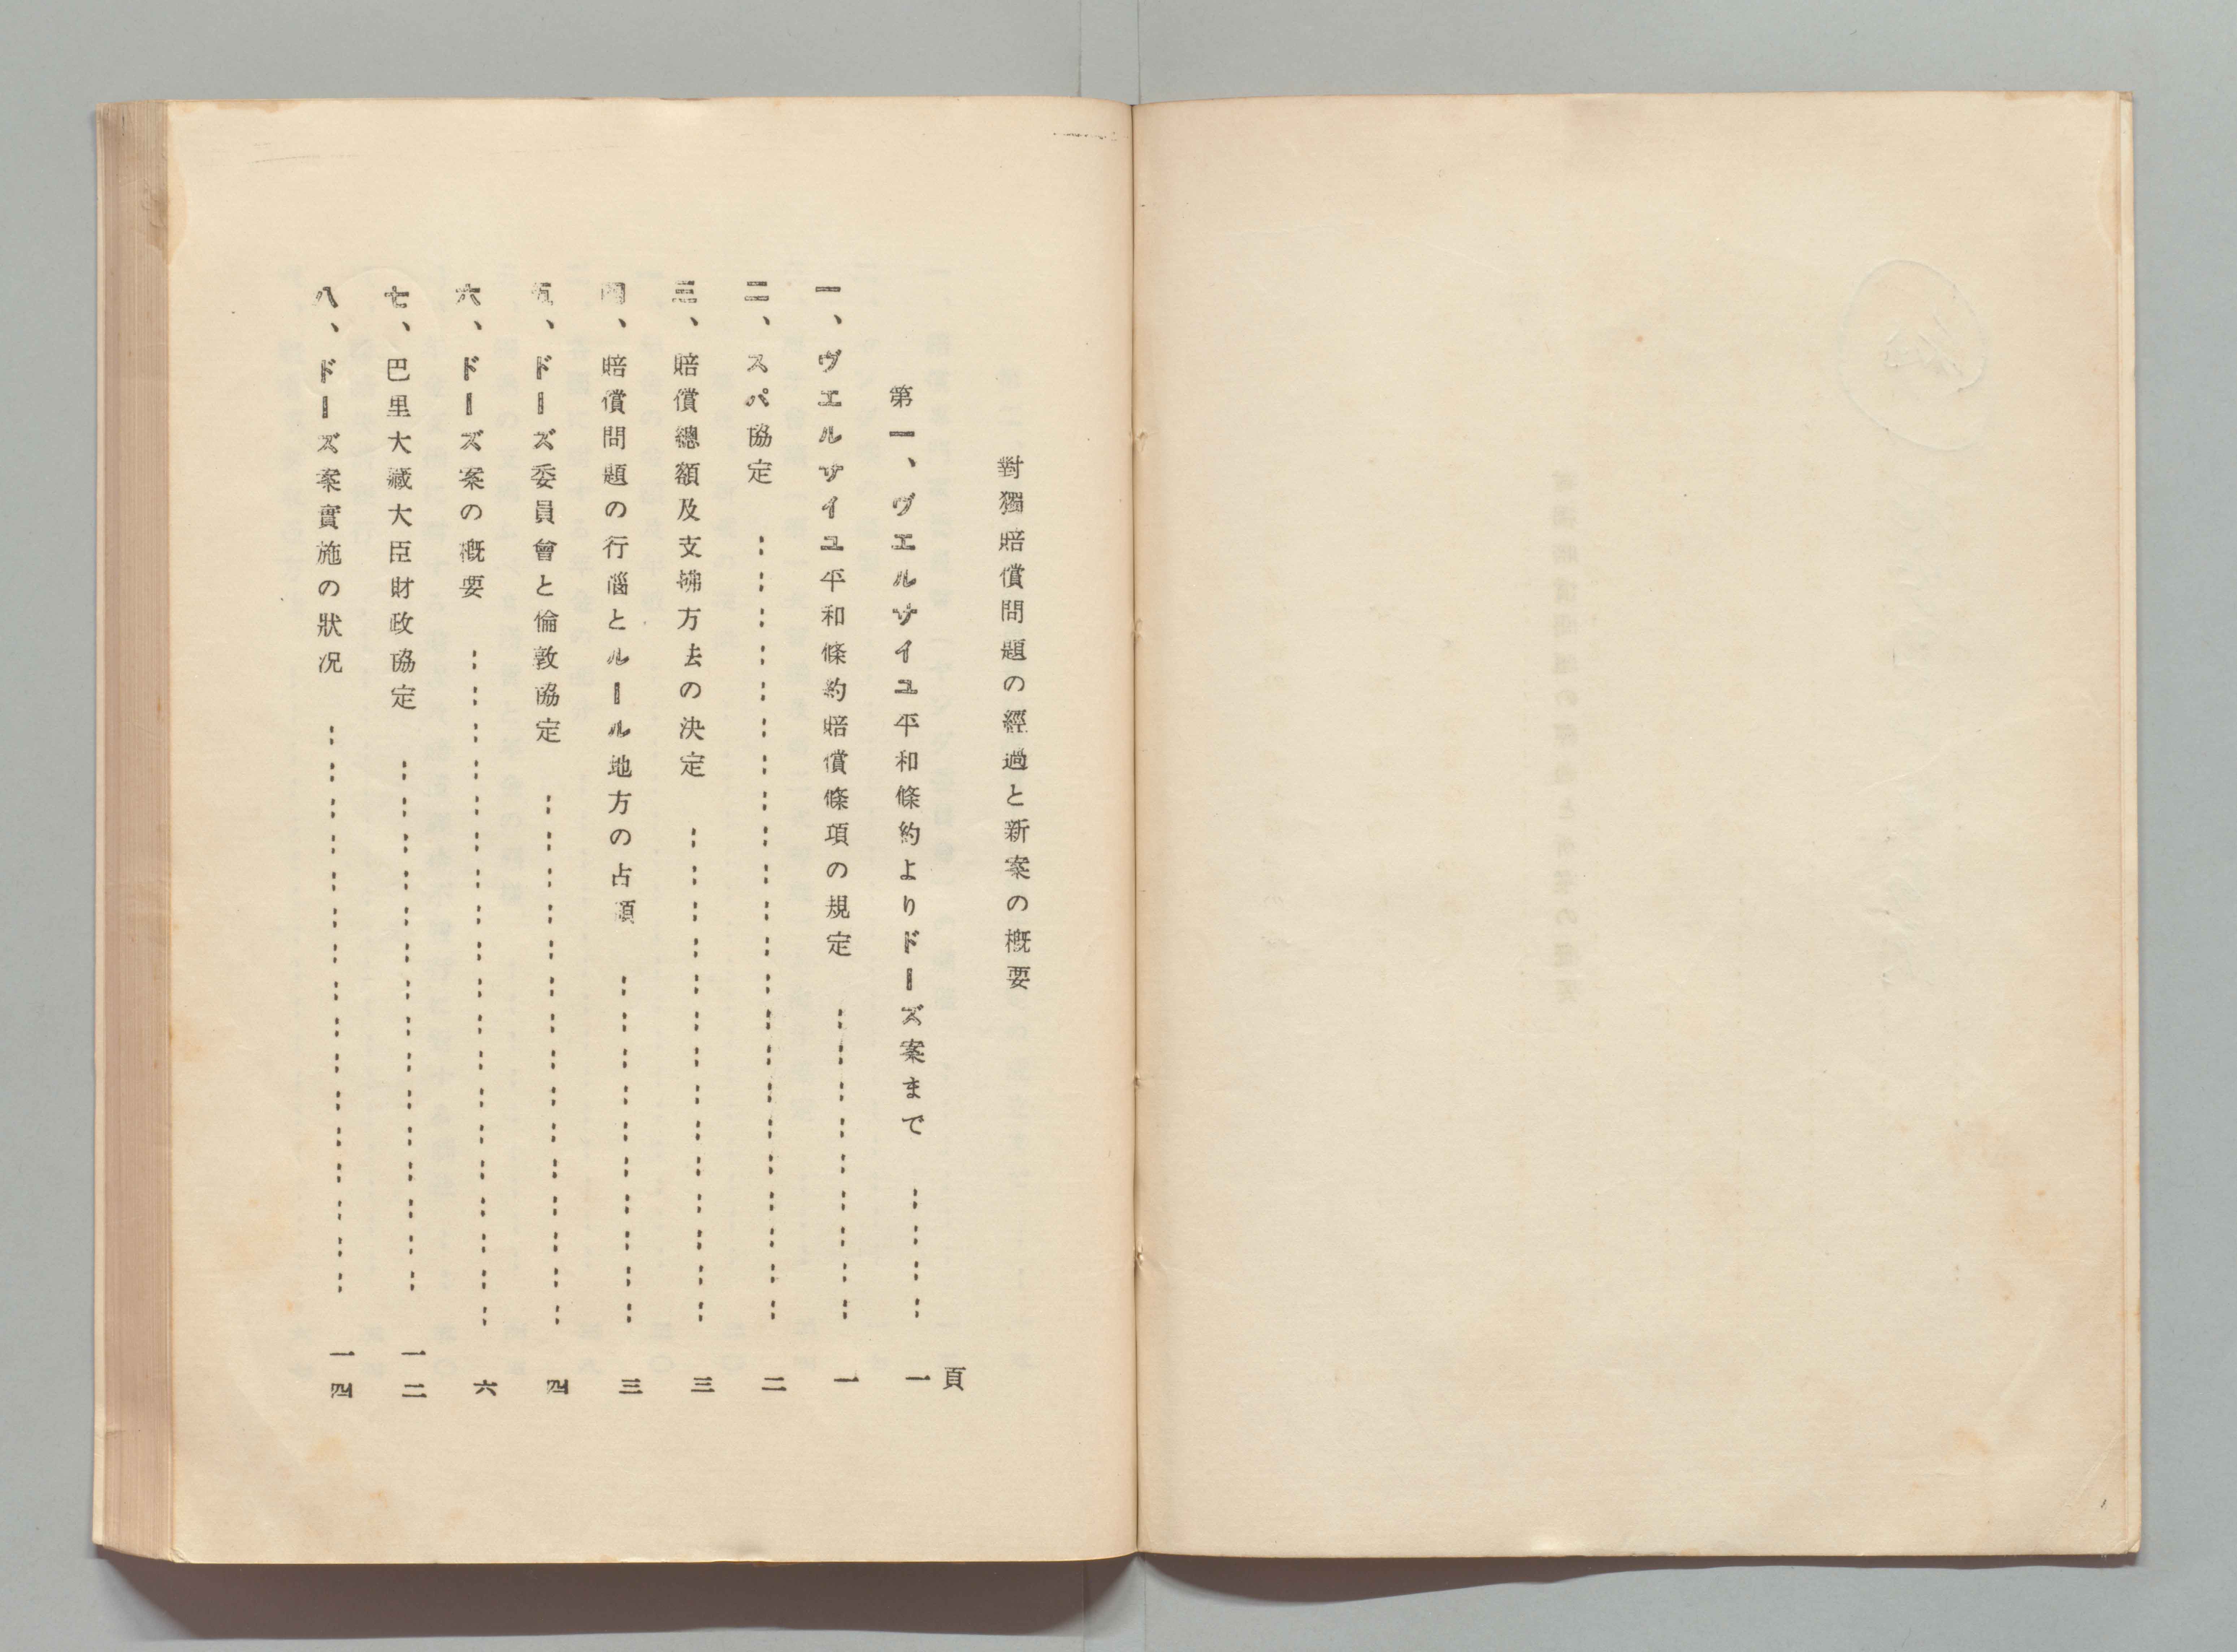 對獨賠償問題の經過と新案の概要
頁
第一、ヴエルサイユ平和條約よりドーズ案まで……………一
一、ヴエルサイユ平和條約賠償條項の規定……………一
二、スパ協定……………二
三、賠償總額及支拂方法の決定……………三
四、賠償問題の行惱とルール地方の占領……………三
五、ドーズ委員會と倫敦協定……………四
六、ドーズ案の概要……………六
七、巴里大藏大臣財政協定……………一二
八、ドーズ案實施の狀況……………一四